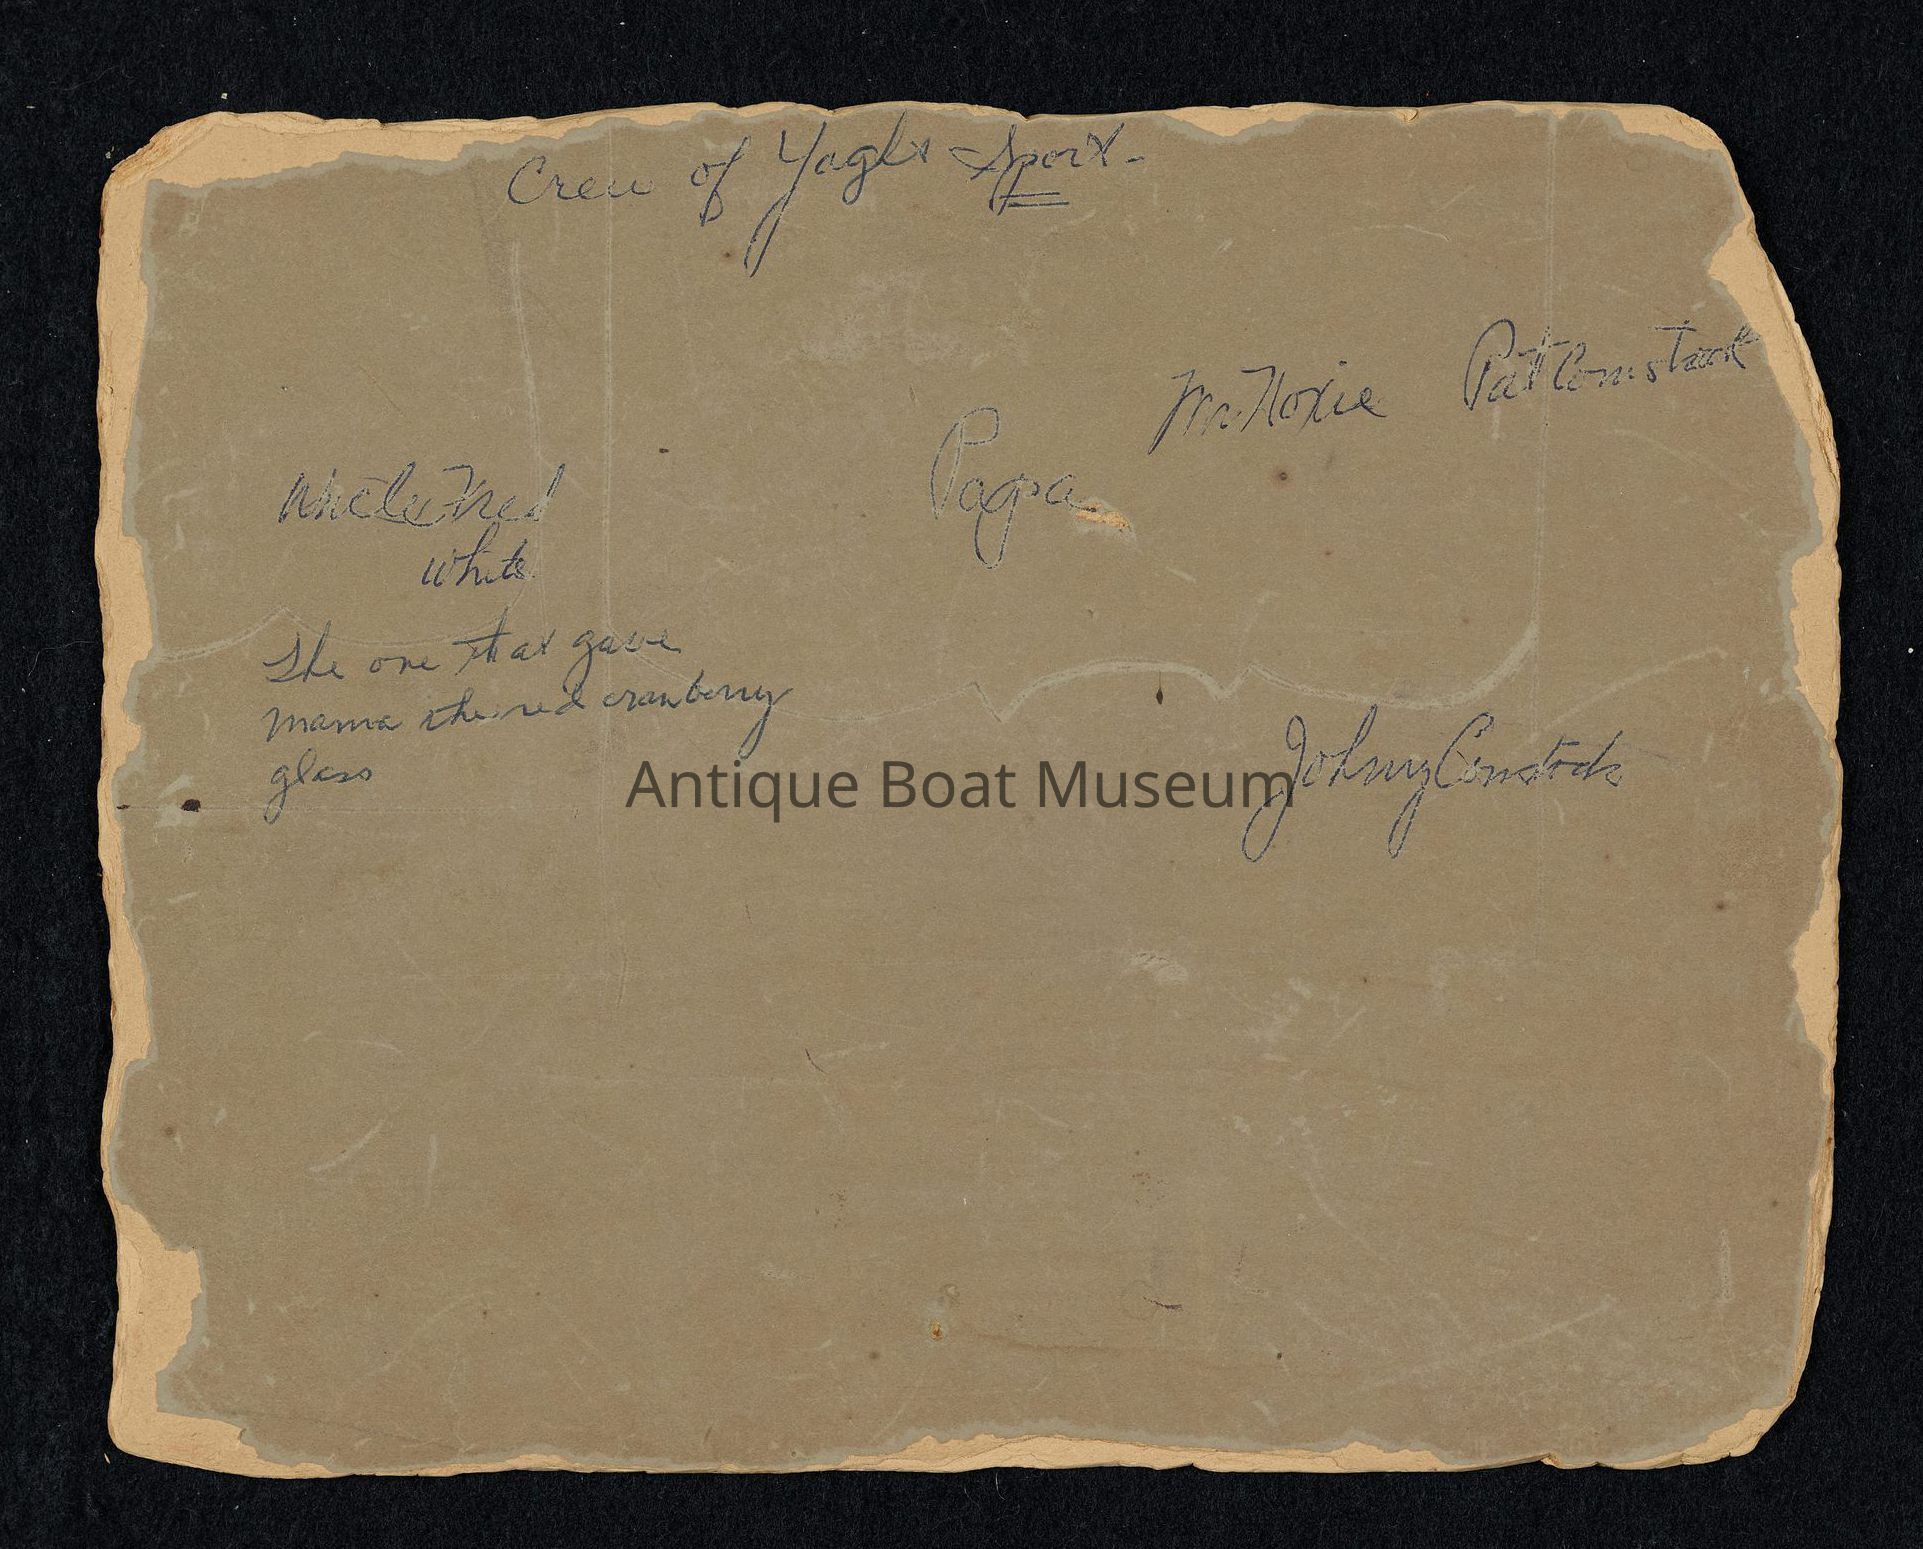 Crew of Yaght Sport-
Mr. Hoxie Pat Comstock
Papa
Uncle Fred
White
The one that gave
mama the red cranberry
glass
Johny Comstock
Antique Boat Museum